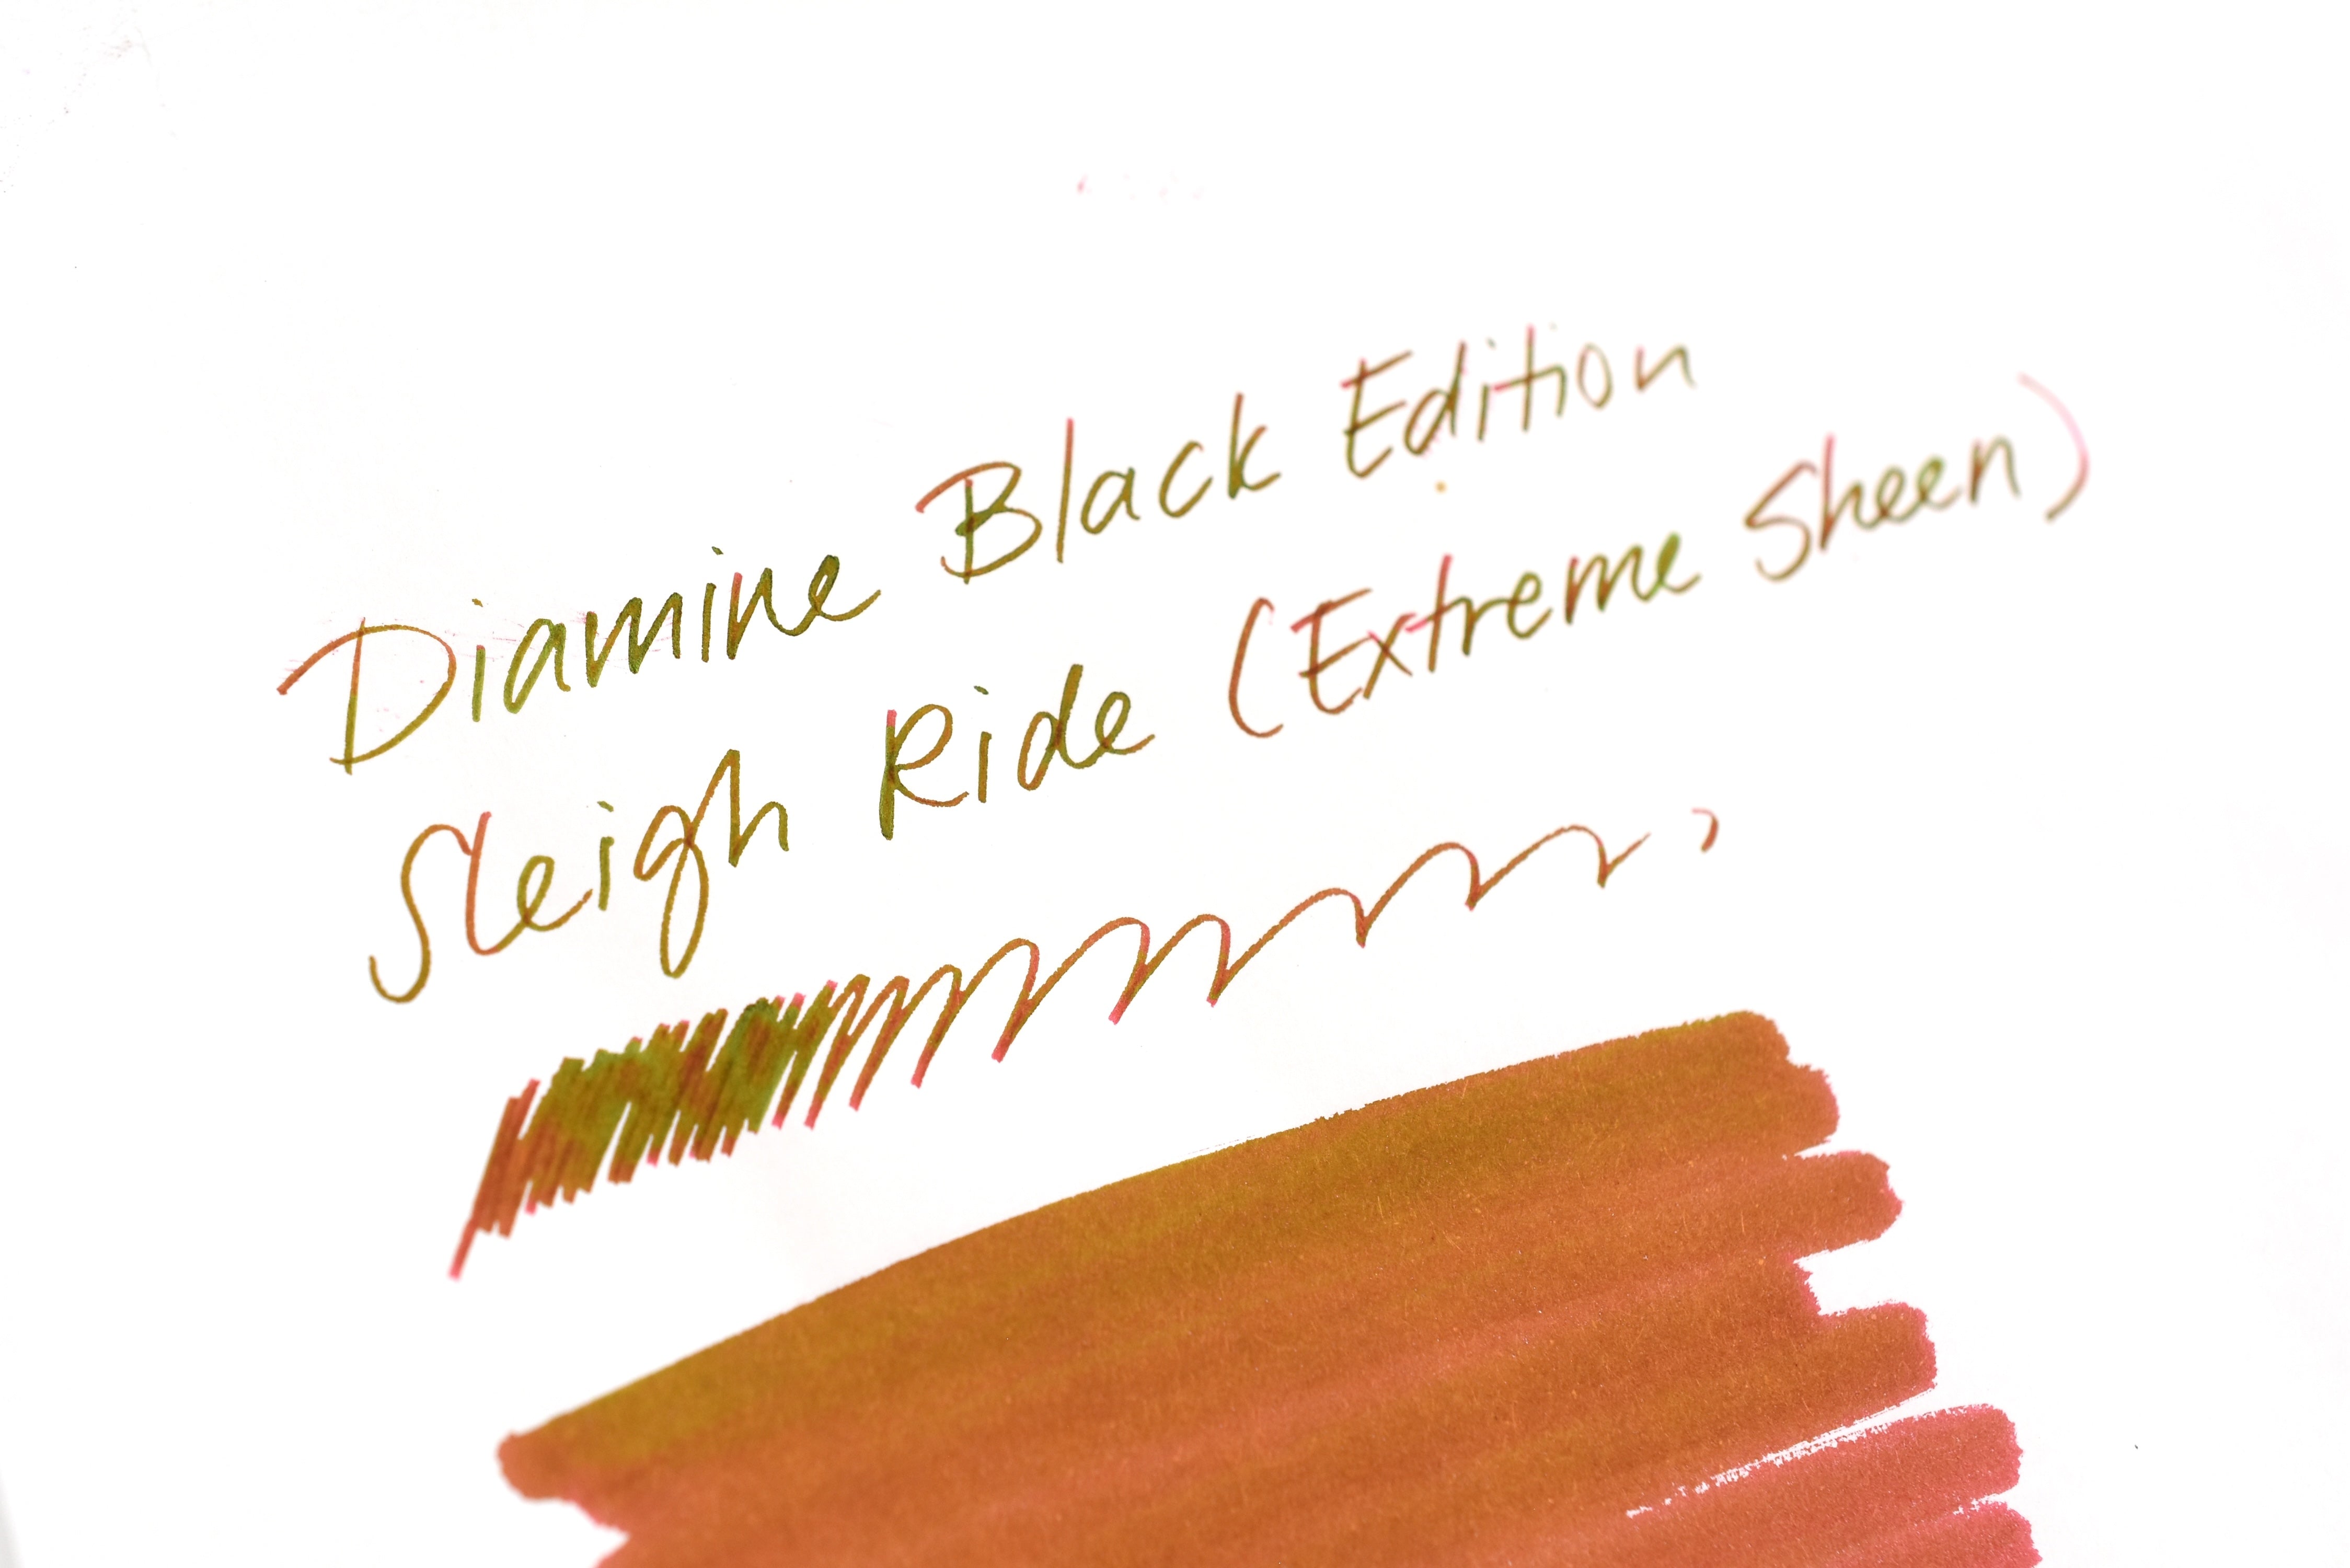 Diamine Black Edition
Sleigh Ride (Extreme Sheen)